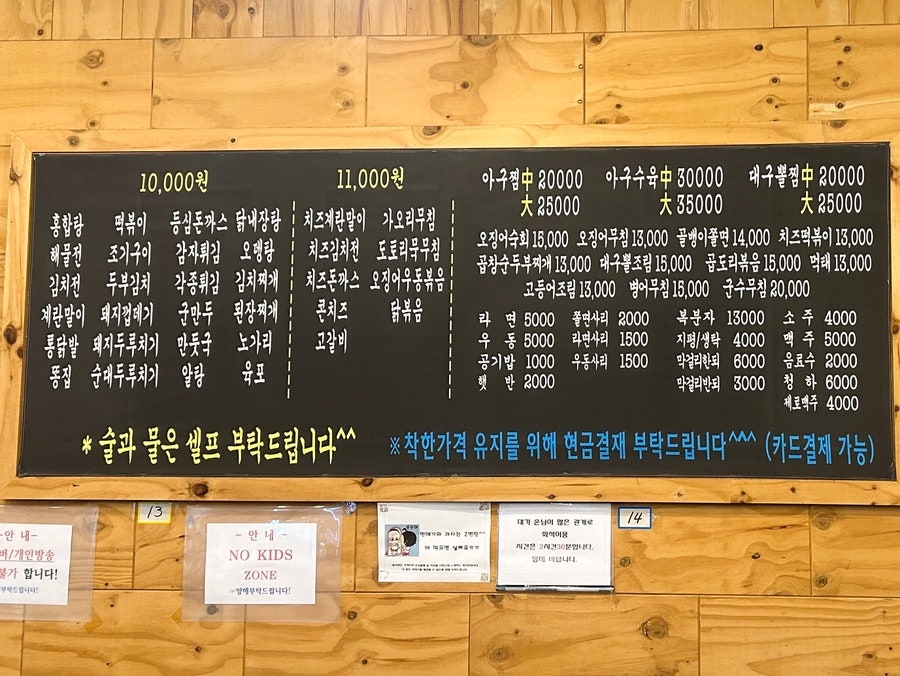 10,000원
홍합탕 떡볶이 등심돈까스 닭내장탕
해물전 조기구이 감자튀김 오뎅탕
김치전 두부김치 각종튀김 김치찌개
계란말이 돼지껍데기 군만두 된장찌개
통닭발 돼지두루치기 만둣국 노가리
똥집 순대두루치기 알탕 육포
11,000원
치즈계란말이 가오리무침
치즈김치전 도토리묵무침
치즈돈까스 오징어우동볶음
콘치즈 닭볶음
고갈비
아구찜 中 20000 아구수육 中 30000 대구뽈찜 中 20000
大 25000 大 35000 大 25000
오징어숙회 15,000 오징어무침 13,000 골뱅이쫄면 14,000 치즈떡볶이 13,000
곱창순두부찌개 13,000 대구뽈조림 15,000 곱도리볶음 15,000 먹태 13,000
고등어조림 13,000 병어무침 15,000 군수무침 20,000
라면 5000 쫄면사리 2000 복분자 13000 소주 4000
우동 5000 라면사리 1500 지평/생탁 4000 맥주 5000
공기밥 1000 우동사리 1500 막걸리한되 6000 음료수 2000
햇반 2000 막걸리반되 3000 청하 6000
제로맥주 4000
* 술과 물은 셀프 부탁드립니다^^
※착한가격 유지를 위해 현금결재 부탁드립니다^^^ (카드결제 가능)
13
14
-안내-
버/개인방송
불가 합니다!
부탁드립니다!
- 안내 -
NO KIDS
ZONE
양해부탁드립니다!
번데기와 과자는 2번만^^
더 먹으면 살쪄요ㅋㅋ
대기 손님이 많은 관계로
좌석이용
시간은 2시간30분입니다.
양해 바랍니다.